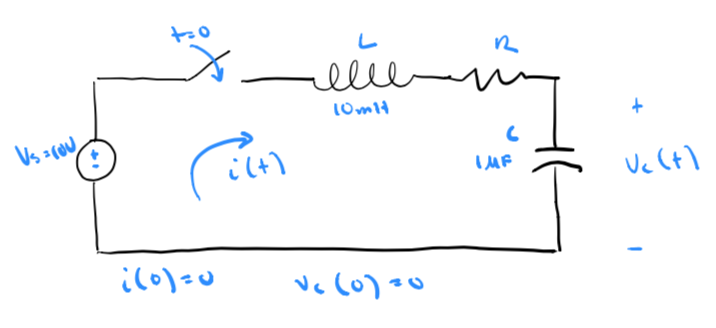 t=0
L
R
10mH
+
C
Vs=10V
+
-
i(t)
1μF
Vc(t)
-
i(0)=0
Vc(0)=0